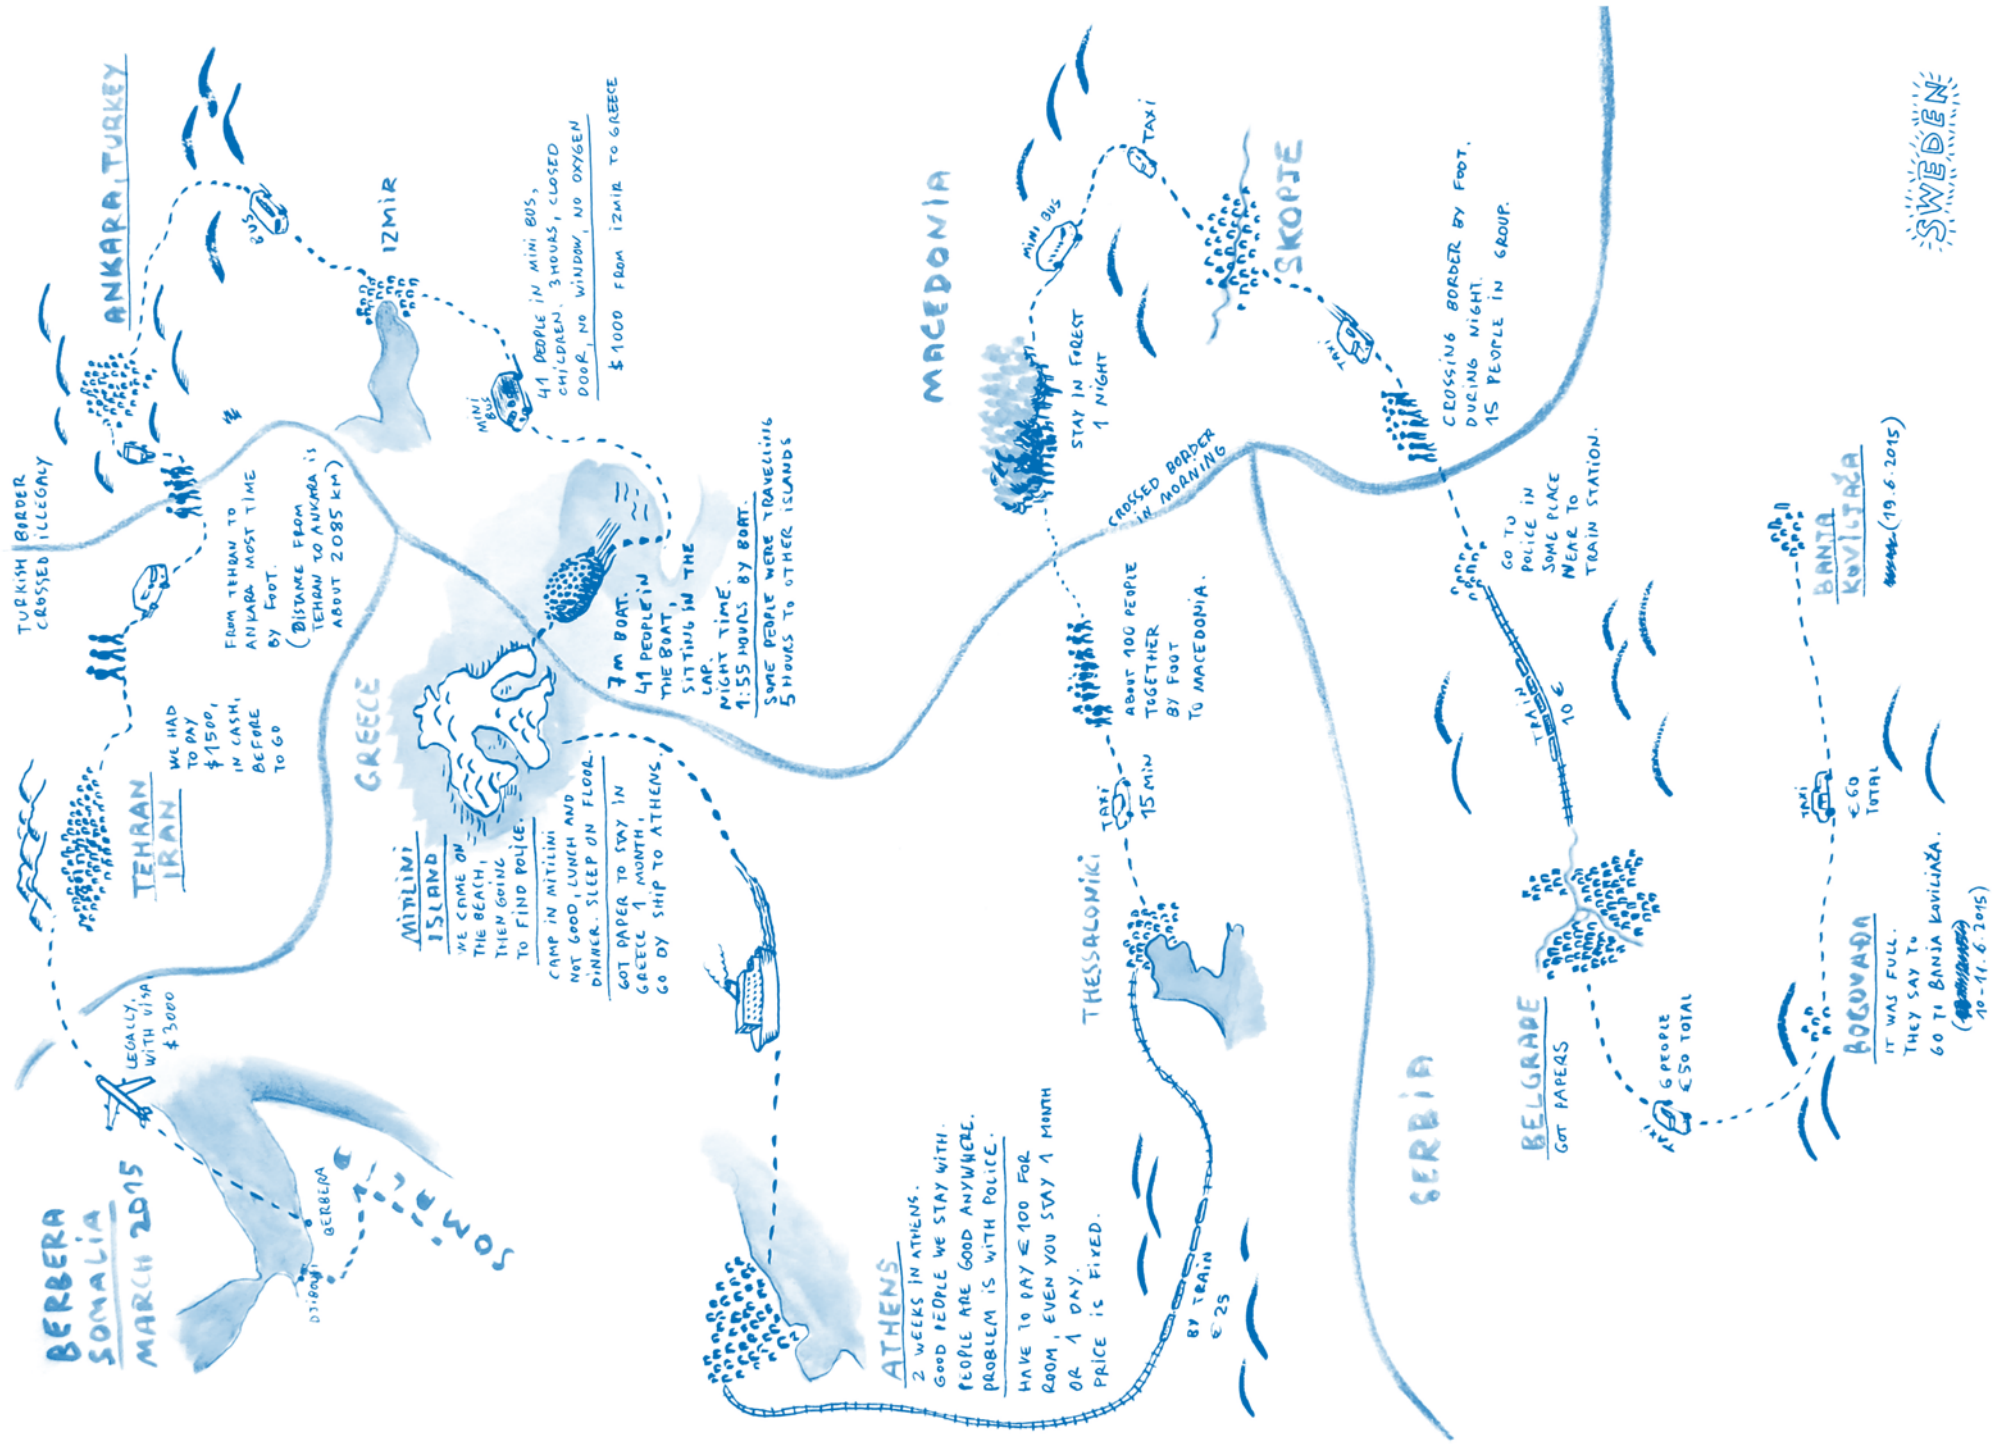 BERBERA
SOMALIA
MARCH 2015
DJIBOUTI
BERBERA
SOMALIA
LEGALLY,
WITH VISA
$ 3000
TEHRAN
IRAN
WE HAD
TO PAY
$1500,
IN CASH,
BEFORE
TO GO
TURKISH BORDER
CROSSED ILLEGALY
FROM TEHRAN TO
ANKARA MOST TIME
BY FOOT.
(DISTANCE FROM
TEHRAN TO ANKARA IS
ABOUT 2085 KM)
ANKARA, TURKEY
BUS
IZMIR
MINI
BUS
41 PEOPLE IN MINI BUS,
CHILDREN. 3 HOURS, CLOSED
DOOR, NO WINDOW, NO OXYGEN
$1000 FROM IZMIR TO GREECE
7 M BOAT.
41 PEOPLE IN
THE BOAT,
SITTING IN THE
LAP.
NIGHT TIME.
1:55 HOURS BY BOAT.
SOME PEOPLE WERE TRAVELING
5 HOURS TO OTHER ISLANDS
GREECE
MITILINI
ISLAND
WE CAME ON
THE BEACH,
THEN GOING
TO FIND POLICE.
CAMP IN MITILINI
NOT GOOD, LUNCH AND
DINNER. SLEEP ON FLOOR.
GOT PAPER TO STAY IN
GREECE 1 MONTH,
GO BY SHIP TO ATHENS.
ATHENS
2 WEEKS IN ATHENS.
GOOD PEOPLE WE STAY WITH.
PEOPLE ARE GOOD ANYWHERE.
PROBLEM IS WITH POLICE.
HAVE TO PAY €100 FOR
ROOM, EVEN YOU STAY 1 MONTH
OR 1 DAY.
PRICE IS FIXED.
BY TRAIN
€ 25
THESSALONIKI
TAXI
15 MIN
ABOUT 100 PEOPLE
TOGETHER
BY FOOT
TO MACEDONIA.
CROSSED BORDER
IN MORNING
MACEDONIA
STAY IN FOREST
1 NIGHT
MINI BUS
TAXI
SKOPJE
TAXI
CROSSING BORDER BY FOOT.
DURING NIGHT.
15 PEOPLE IN GROUP.
SERBIA
GO TO
POLICE IN
SOME PLACE
NEAR TO
TRAIN STATION.
TRAIN
10 €
BELGRADE
GOT PAPERS
TAXI
6 PEOPLE
€50 TOTAL
BOGOVAĐA
IT WAS FULL.
THEY SAY TO
GO TI BANJA KOVILJAČA.
10-11.6.2015)
TAXI
€ 60
TOTAL
BANJA
KOVILJAČA
(19.6.2015)
SWEDEN